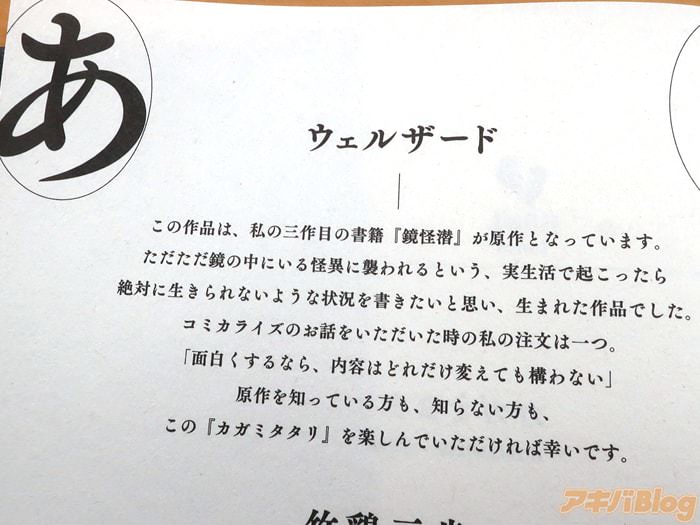 あ
ウェルザード
この作品は、私の三作目の書籍『鏡怪潜』が原作となっています。
ただただ鏡の中にいる怪異に襲われるという、実生活で起こったら
絶対に生きられないような状況を書きたいと思い、生まれた作品でした。
コミカライズのお話をいただいた時の私の注文は一つ。
「面白くするなら、内容はどれだけ変えても構わない」
原作を知っている方も、知らない方も、
この『カガミタタリ』を楽しんでいただければ幸いです。
アキバBlog